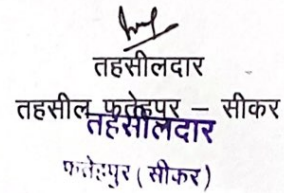 तहसीलदार
तहसील फतेहपुर – सीकर
तहसीलदार
फतेहपुर (सीकर)